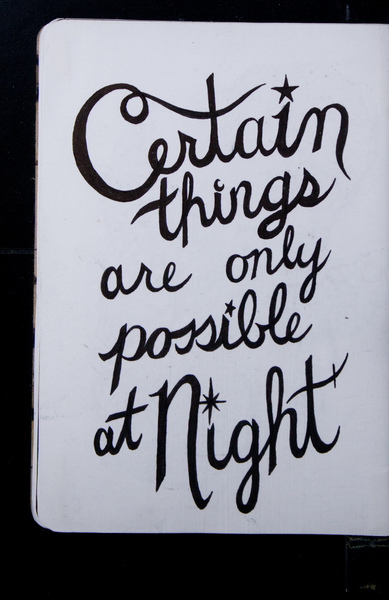 Certain
things
are only
possible
at Night